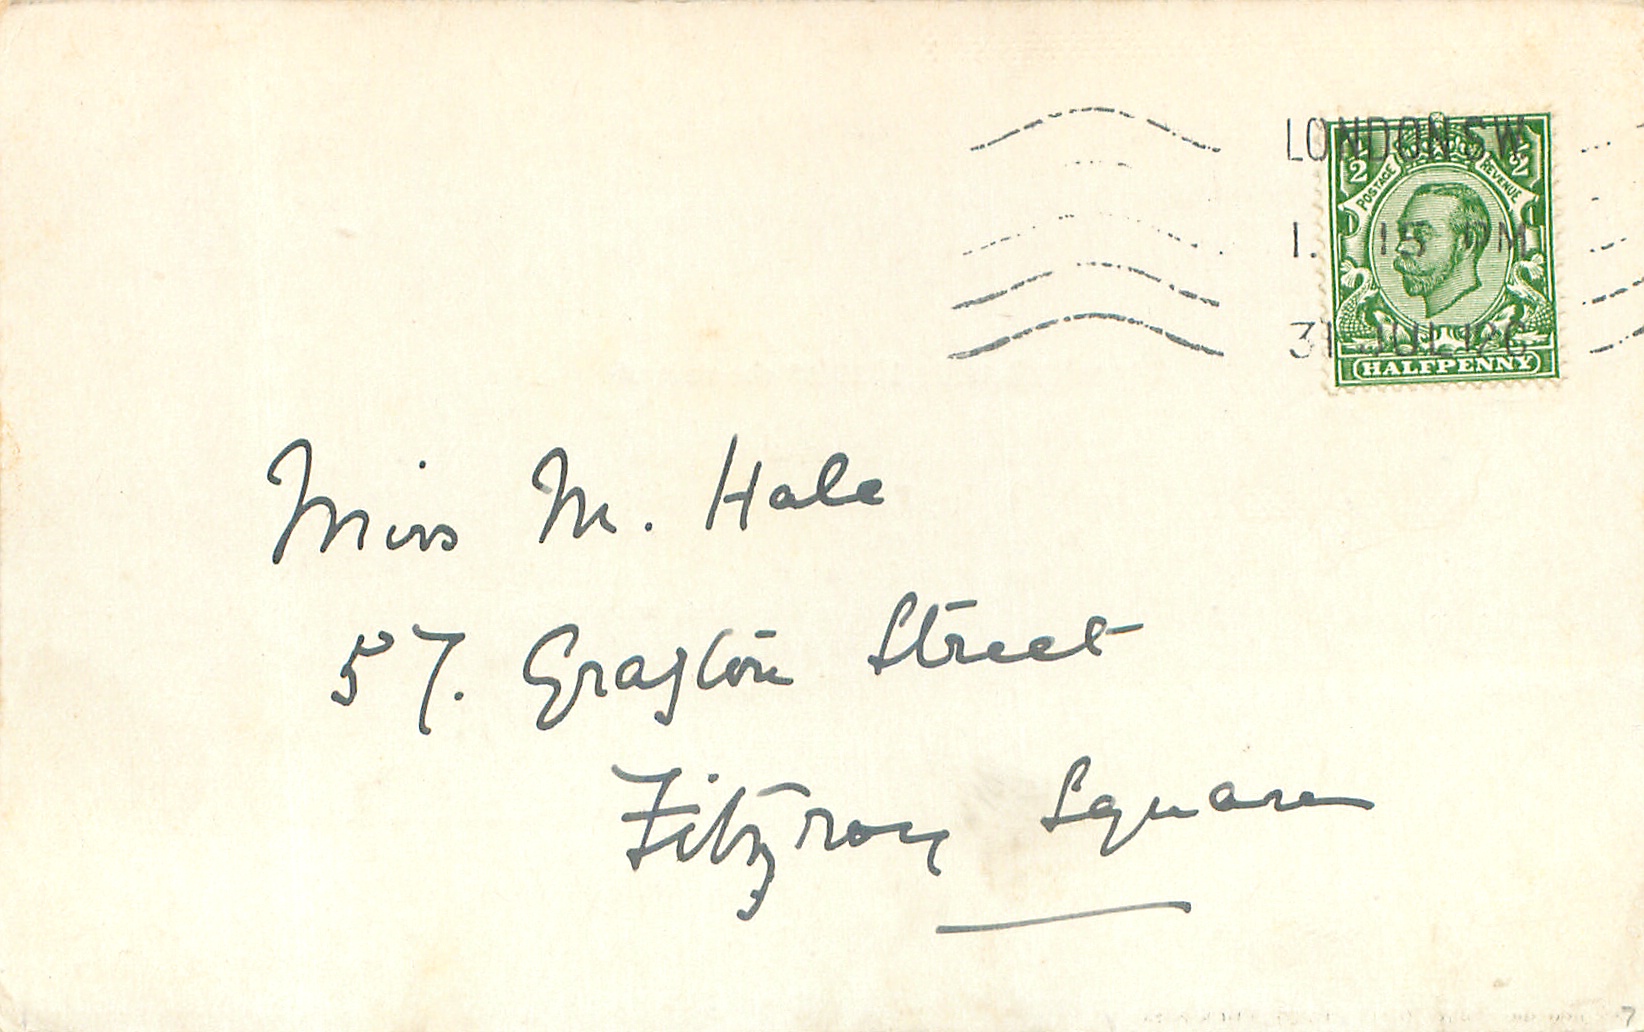 LONDON.S.W.
1. 15 PM
31 JUL 12
½ POSTAGE REVENUE ½
HALFPENNY
Miss M. Hale
57. Grafton Street
Fitzroy Square